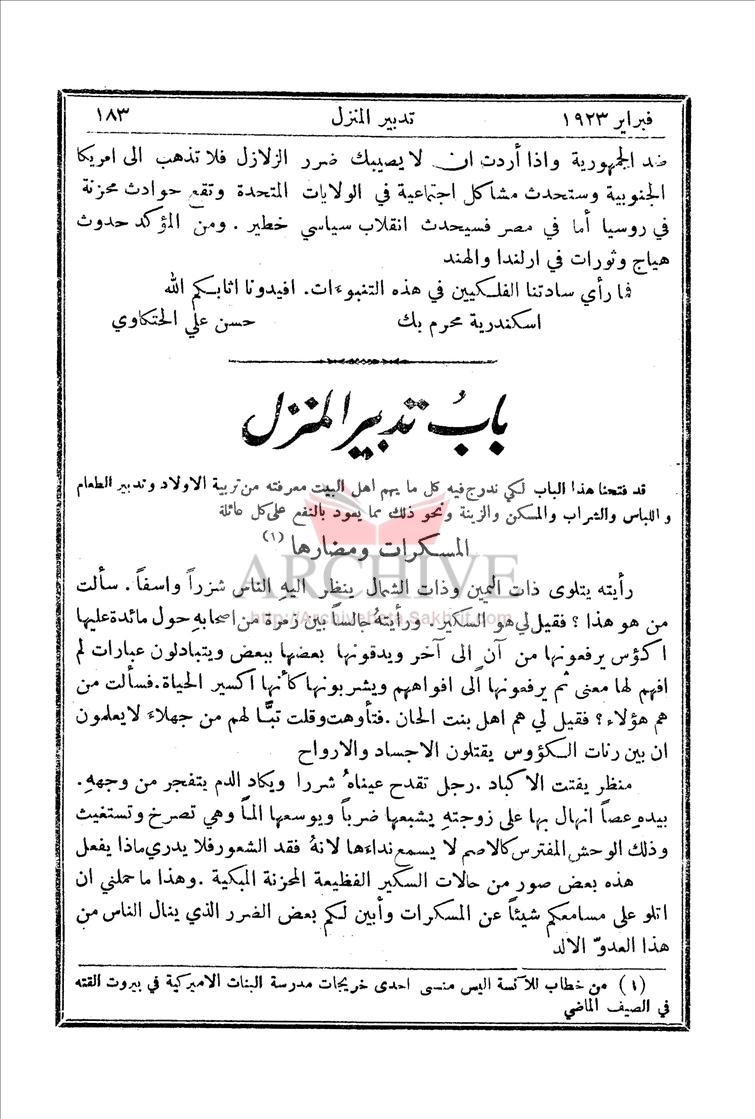 فبراير ١٩٢٣ تدبير المنزل ١٨٣
ضد الجمهورية واذا أردت ان لا يصيبك ضرر الزلازل فلا تذهب الى امريكا
الجنوبية وستحدث مشاكل اجتماعية في الولايات المتحدة وتقع حوادث محزنة
في روسيا أما في مصر فسيحدث انقلاب سياسي خطير . ومن المؤكد حدوث
هياج وثورات في ارلندا والهند
فما رأي سادتنا الفلكيين في هذه التنبوءات. افيدونا اثابكم الله
اسكندرية محرم بك حسن علي الحتكاوي
بابُ تدبير المنزل
قد فتحنا هذا الباب لكي ندرج فيه كل ما يهم اهل البيت معرفته من تربية الاولاد وتدبير الطعام
واللباس والشراب والمسكن والزينة ونحو ذلك مما يعود بالنفع على كل عائلة
المسكرات ومضارها (١)
ARCHIVE
http://Archivebeta.Sakhrit.com
رأيته يتلوى ذات اليمين وذات الشمال ينظر اليهِ الناس شزراً واسفاً . سألت
من هو هذا ؟ فقيل لي هو السكير . ورأيتهُ جالساً بين زمرة من اصحابهِ حول مائدة عليها
اكؤس يرفعونها من آن الى آخر ويدقونها بعضها ببعض ويتبادلون عبارات لم
افهم لها معنى ثم يرفعونها الى افواههم ويشربونها كأنها اكسير الحياة. فسألت من
هم هؤلاء ؟ فقيل لي هم اهل بنت الحان . فتأوهت وقلت تبًّا لهم من جهلاء لا يعلمون
ان بين رنات الكؤوس يقتلون الاجساد والارواح
منظر يفتت الاكباد . رجل تقدح عيناهُ شررا ويكاد الدم يتفجر من وجههِ .
بيده عصاً انهال بها على زوجتهِ يشبعها ضرباً ويوسعها المـاً وهي تصرخ وتستغيث
وذلك الوحش المفترس كالاصم لا يسمع نداءها لانهُ فقد الشعور فلا يدري ماذا يفعل
هذه بعض صور من حالات السكير الفظيعة المحزنة المبكية . وهذا ما حملني ان
اتلو على مسامعكم شيئاً عن المسكرات وأبين لكم بعض الضرر الذي ينال الناس من
هذا العدوّ الالد
(١) من خطاب للآنسة اليس منسى احدى خريجات مدرسة البنات الاميركية في بيروت القته
في الصيف الماضي